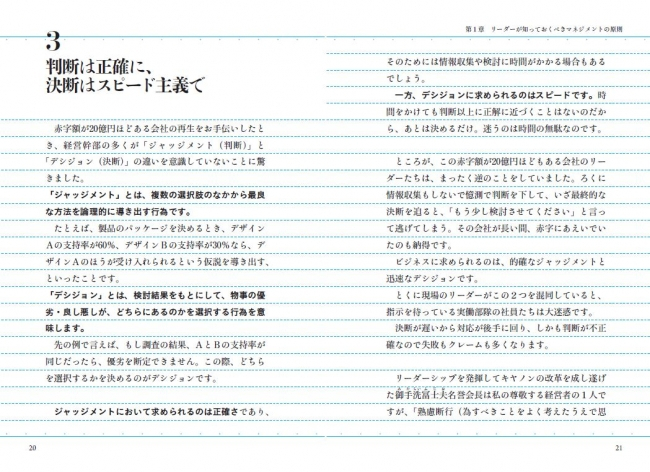 3
判断は正確に、
決断はスピード主義で
赤字額が20億円ほどある会社の再生をお手伝いしたと
き、経営幹部の多くが「ジャッジメント（判断）」と
「デシジョン（決断）」の違いを意識していないことに驚
きました。
「ジャッジメント」とは、複数の選択肢のなかから最良
な方法を論理的に導き出す行為です。
たとえば、製品のパッケージを決めるとき、デザイン
Aの支持率が60%、デザインBの支持率が30%なら、デ
ザインAのほうが受け入れられるという仮説を導き出す、
といったことです。
「デシジョン」とは、検討結果をもとにして、物事の優
劣・良し悪しが、どちらにあるのかを選択する行為を意
味します。
先の例で言えば、もし調査の結果、AとBの支持率が
同じだったら、優劣を断定できません。この際、どちら
を選択するかを決めるのがデシジョンです。
ジャッジメントにおいて求められるのは正確さであり、
20
第1章 リーダーが知っておくべきマネジメントの原則
そのためには情報収集や検討に時間がかかる場合もある
でしょう。
一方、デシジョンに求められるのはスピードです。時
間をかけても判断以上に正解に近づくことはないのだか
ら、あとは決めるだけ。迷うのは時間の無駄なのです。
ところが、この赤字額が20億円ほどもある会社のリー
ダーたちは、まったく逆のことをしていました。ろくに
情報収集もしないで憶測で判断を下して、いざ最終的な
決断を迫ると、「もう少し検討させてください」と言っ
て逃げてしまう。その会社が長い間、赤字にあえいでい
たのも納得です。
ビジネスに求められるのは、的確なジャッジメントと
迅速なデシジョンです。
とくに現場のリーダーがこの2つを混同していると、
指示を待っている実働部隊の社員たちは大迷惑です。
決断が遅いから対応が後手に回り、しかも判断が不正
確なので失敗もクレームも多くなります。
リーダーシップを発揮してキヤノンの改革を成し遂げ
た御手洗富士夫名誉会長は私の尊敬する経営者の1人で
すが、「熟慮断行（為すべきことをよく考えたうえで思
21